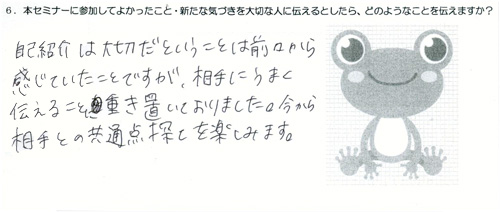 6．本セミナーに参加してよかったこと・新たな気づきを大切な人に伝えるとしたら、どのようなことを伝えますか？
自己紹介は大切だということは前々から
感じていたことですが、相手にうまく
伝えることに重き置いておりました。今から
相手との共通点探しを楽しみます。